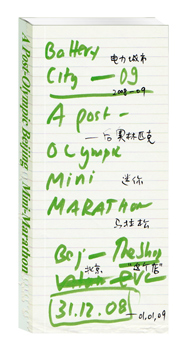 A Post-Olympic Beijing Mini-Marathon
Battery
电力城市
City — 09
2008–09
A post-
— 后奥林匹克
Olympic
Mini
迷你
MARATHON
马拉松
Beij – The Shop
北京 "这个店"
31.12.08
— 01.01.09